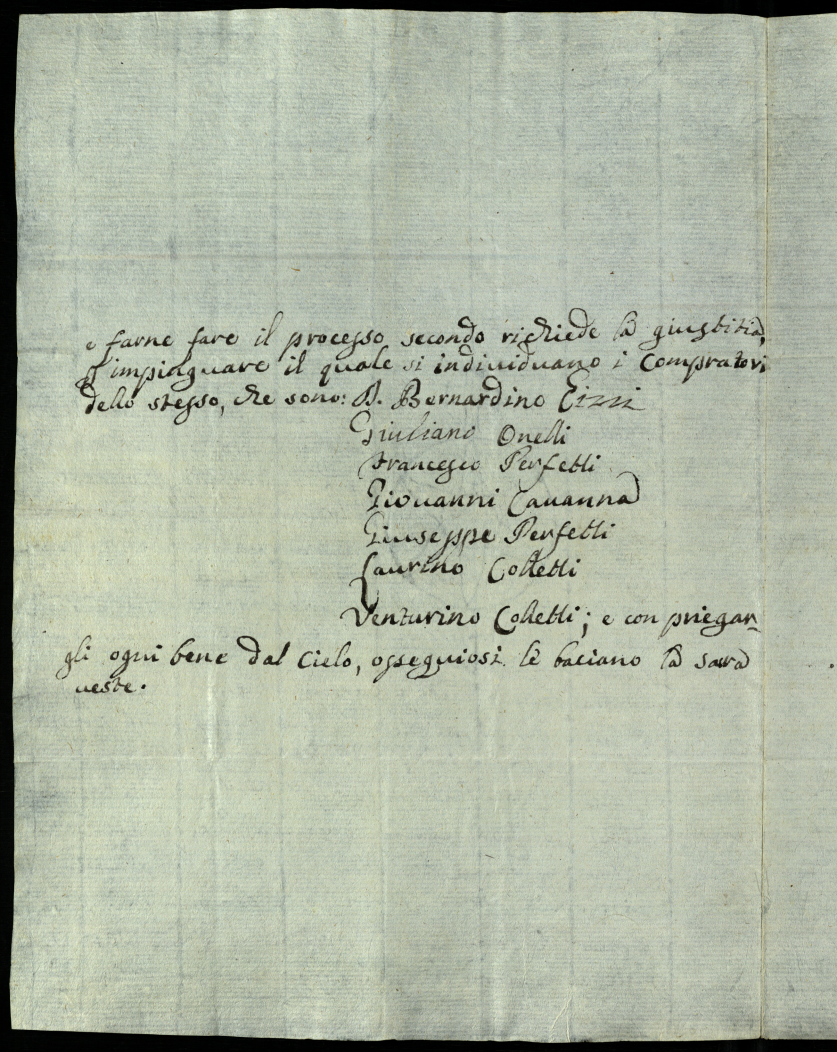 e farne fare il processo secondo richiede la giustitia,
impinguare il quale si individuano i Compratori
dello stesso, che sono: D. Bernardino Cizzi
Giuliano Onelli
Francesco Perfetti
Giovanni Cavanna
Giuseppe Perfetti
Laurino Colletti
Venturino Colletti; e con priegar-
gli ogni bene dal Cielo, ossequiosi le baciano la sacra
veste.